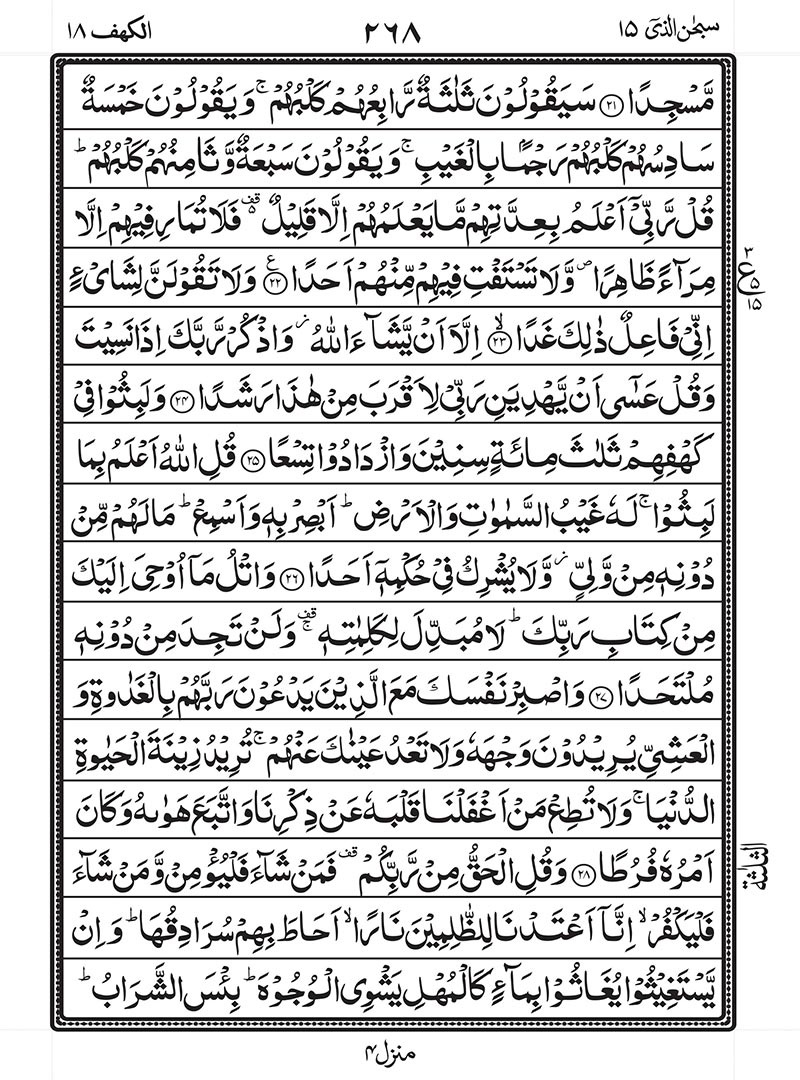 سبحٰن الذیٓ ۱۵
۲۶۸
الکهف ۱۸
مَّسْجِدًا ﴿۲۱﴾ سَيَقُوْلُوْنَ ثَلٰثَةٌ رَّابِعُهُمْ كَلْبُهُمْ ۚ وَيَقُوْلُوْنَ خَمْسَةٌ
سَادِسُهُمْ كَلْبُهُمْ رَجْمًۢا بِالْغَيْبِ ۚ وَيَقُوْلُوْنَ سَبْعَةٌ وَّثَامِنُهُمْ كَلْبُهُمْ ؕ
قُلْ رَّبِّىْٓ اَعْلَمُ بِعِدَّتِهِمْ مَّا يَعْلَمُهُمْ اِلَّا قَلِيْلٌ ۵ قف فَلَا تُمَارِ فِيْهِمْ اِلَّا
مِرَآءً ظَاهِرًا ص وَّلَا تَسْتَفْتِ فِيْهِمْ مِّنْهُمْ اَحَدًا ﴿۲۲﴾ ع وَلَا تَقُوْلَنَّ لِشَاىْءٍ
۳
ع
۵
۱۵
اِنِّىْ فَاعِلٌ ذٰلِكَ غَدًا ﴿۲۳﴾ ۙ اِلَّاۤ اَنْ يَّشَآءَ اللّٰهُ ز وَاذْكُرْ رَّبَّكَ اِذَا نَسِيْتَ
وَقُلْ عَسٰٓى اَنْ يَّهْدِيَنِ رَبِّىْ لِاَقْرَبَ مِنْ هٰذَا رَشَدًا ﴿۲۴﴾ وَلَبِثُوْا فِىْ
كَهْفِهِمْ ثَلٰثَ مِائَةٍ سِنِيْنَ وَازْدَادُوْا تِسْعًا ﴿۲۵﴾ قُلِ اللّٰهُ اَعْلَمُ بِمَا
لَبِثُوْا ۚ لَهٗ غَيْبُ السَّمٰوٰتِ وَالْاَرْضِ ؕ اَبْصِرْ بِهٖ وَاَسْمِعْ ؕ مَا لَهُمْ مِّنْ
دُوْنِهٖ مِنْ وَّلِىٍّ ز وَّلَا يُشْرِكُ فِىْ حُكْمِهٖٓ اَحَدًا ﴿۲۶﴾ وَاتْلُ مَاۤ اُوْحِىَ اِلَيْكَ
مِنْ كِتَابِ رَبِّكَ ؕ لَا مُبَدِّلَ لِكَلِمٰتِهٖ ۚ قف وَلَنْ تَجِدَ مِنْ دُوْنِهٖ
مُلْتَحَدًا ﴿۲۷﴾ وَاصْبِرْ نَفْسَكَ مَعَ الَّذِيْنَ يَدْعُوْنَ رَبَّهُمْ بِالْغَدٰوةِ وَ
الْعَشِىِّ يُرِيْدُوْنَ وَجْهَهٗ وَلَا تَعْدُ عَيْنٰكَ عَنْهُمْ ۚ تُرِيْدُ زِيْنَةَ الْحَيٰوةِ
الدُّنْيَا ۚ وَلَا تُطِعْ مَنْ اَغْفَلْنَا قَلْبَهٗ عَنْ ذِكْرِنَا وَاتَّبَعَ هَوٰىهُ وَكَانَ
اَمْرُهٗ فُرُطًا ﴿۲۸﴾ وَقُلِ الْحَقُّ مِنْ رَّبِّكُمْ قف فَمَنْ شَآءَ فَلْيُؤْمِنْ وَّمَنْ شَآءَ
الثلثة
فَلْيَكْفُرْ ۙ اِنَّاۤ اَعْتَدْنَا لِلظّٰلِمِيْنَ نَارًا ۙ اَحَاطَ بِهِمْ سُرَادِقُهَا ؕ وَاِنْ
يَّسْتَغِيْثُوْا يُغَاثُوْا بِمَآءٍ كَالْمُهْلِ يَشْوِى الْوُجُوْهَ ؕ بِئْسَ الشَّرَابُ ؕ
منزل ۴